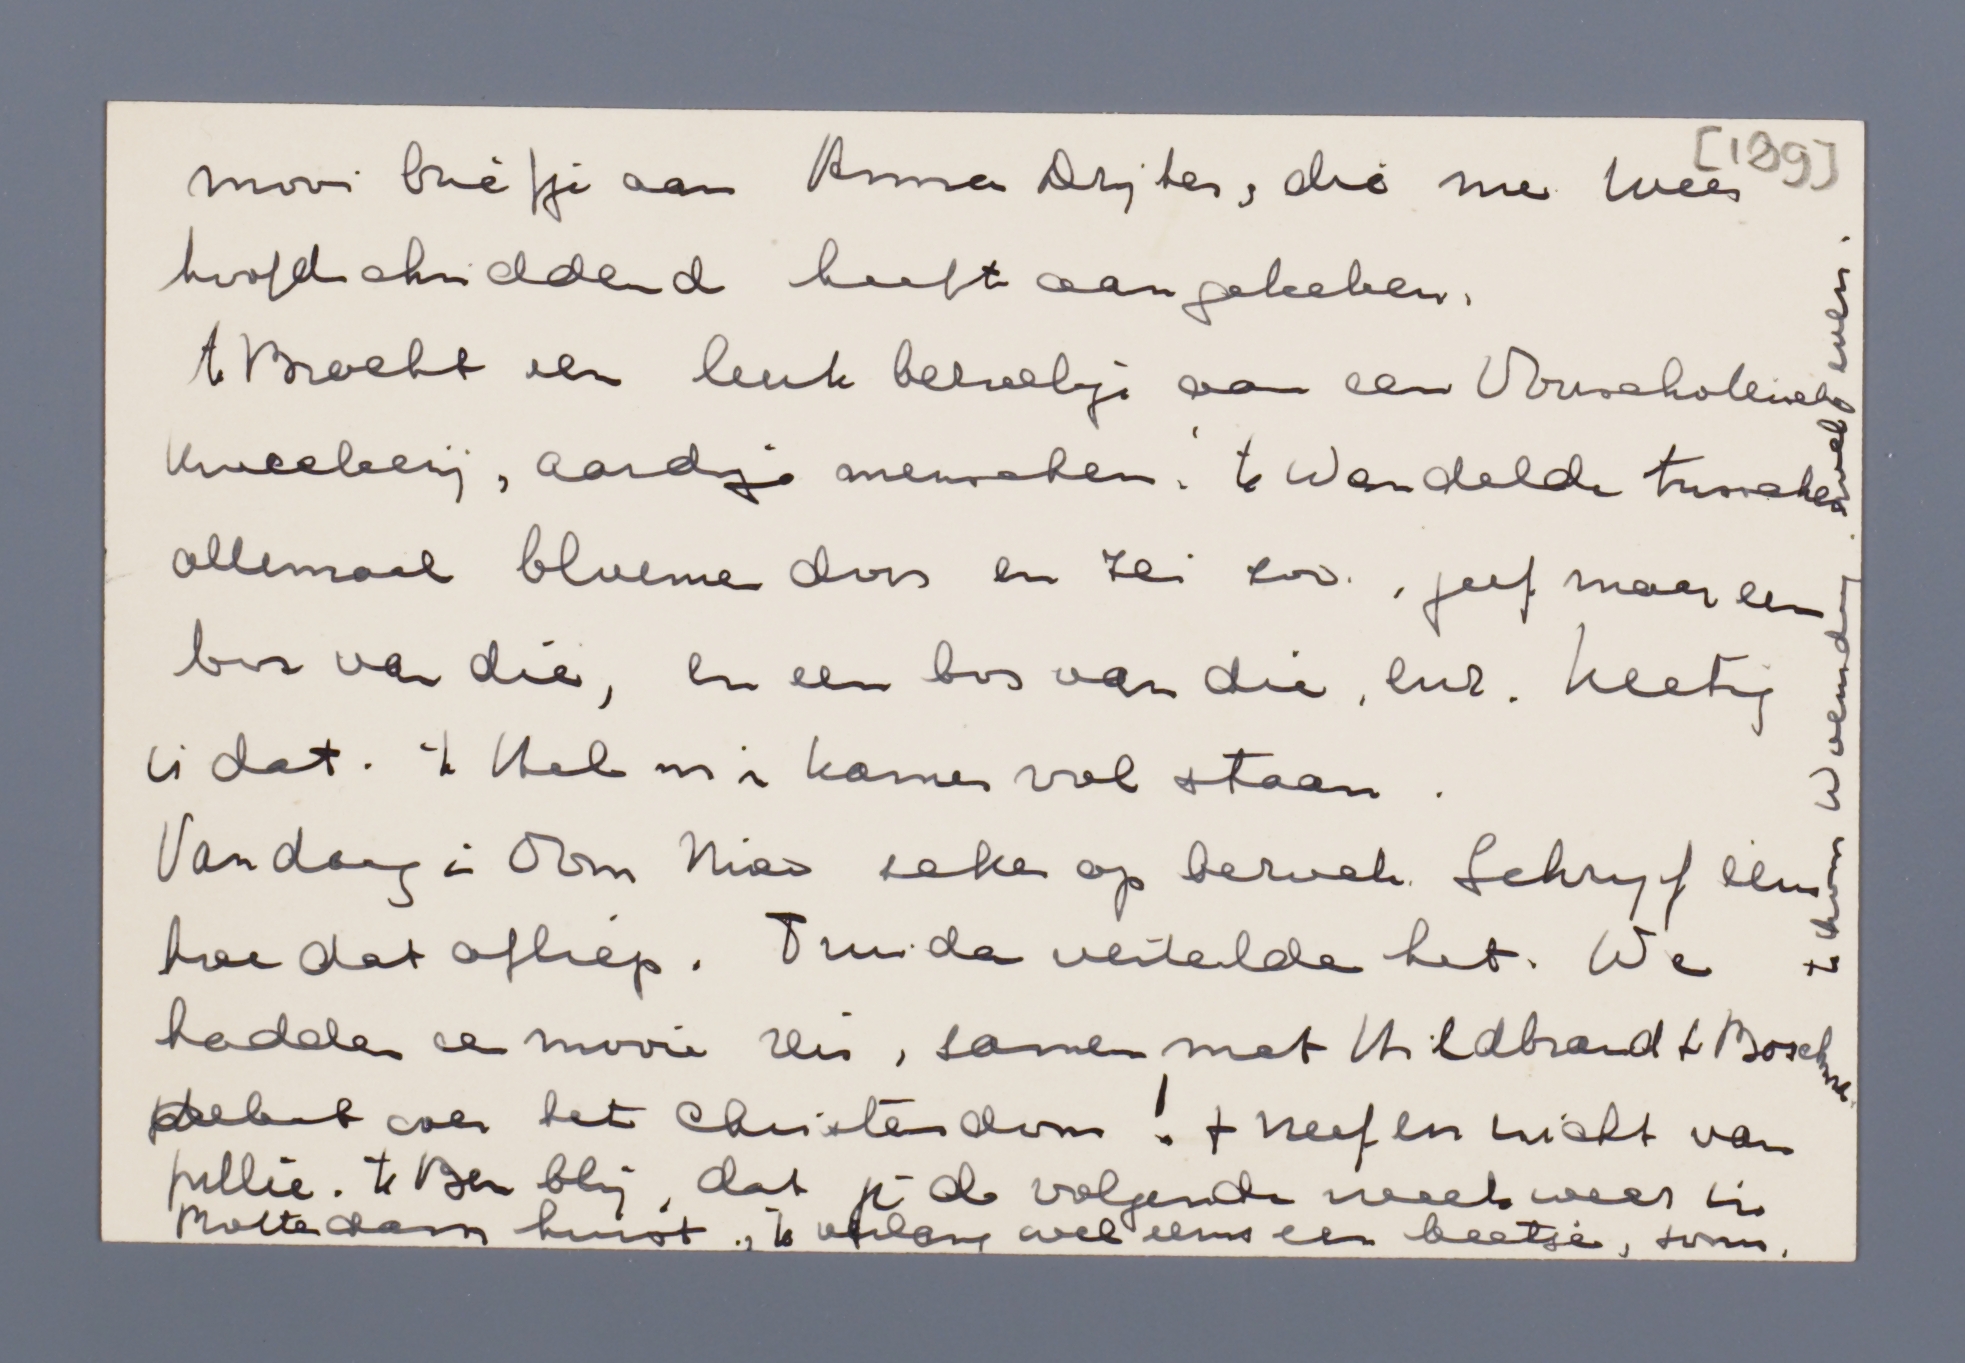 [199]
mooi briefje aan Anna Drijver, die me wees
hoofdschuddend heeft aangekeken.
'k Bracht een leuk bezoekje aan een Voorschotensche
kweekerij, aardige menschen. 'k Wandelde tusschen
allemaal bloemen door en zei zoo, geef maar een
bos van die, en een bos van die, enz. Keetig
is dat. 'k Heb m'n kamer vol staan.
Vandaag is Oom Nico zeker op bezoek. Schrijf eens
hoe dat afliep. Truida vertelde het. We
hadden een mooie reis, samen met Hildbrand &
debat over het Christendom! + neef en nicht van
jullie. 'k Ben blij, dat je de volgende week weer in
Rotterdam huist, 'k verlang wel eens een beetje, soms.
'k Kom Woensdag wel even.